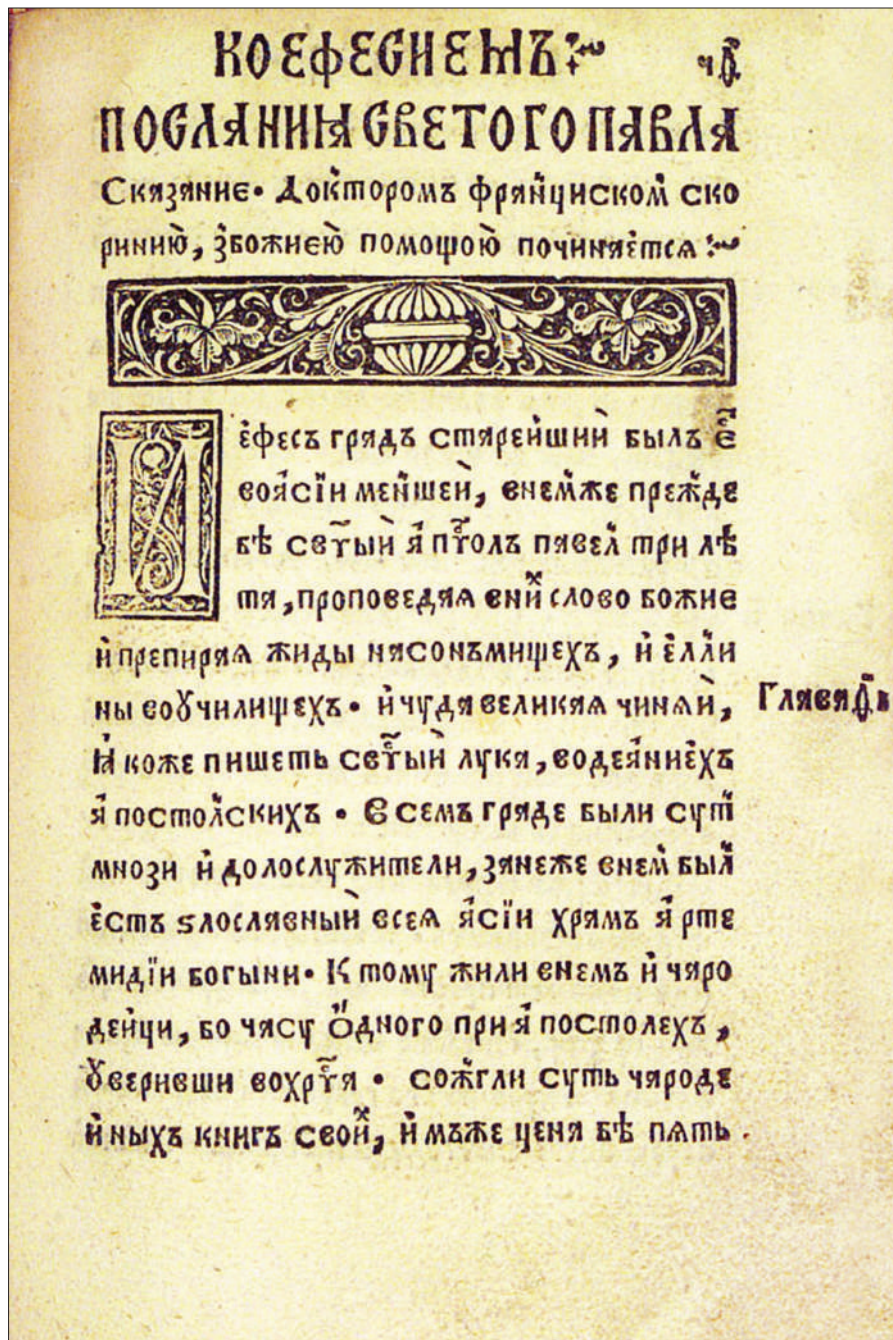 КОЕФЕСИЕМЪ
ПОСЛАНИꙖ СВЕТОГО ПАВЛА
Сказание• Доктором̾ъ франциском̾ ско
ринию, з̾божиею помощою починяется
ефесъ градъ старейший былъ е҃
воасїи меншей, внем̾же преж̾де
бѣ свт҃ый а пт҃олъ павел̾ три лѣ
та, проповедаѧ вних̾ слово божие
и препираѧ жиды насонъмищехъ, и елли
ны воꙋчилищехъ• и чуда великаѧ чинѧй,
Глава
Ꙗ коже пишеть свт҃ый лука, водеаниехъ
а постолскихъ • Всемъ граде были сут̾
мнози и долослужители, занеже внем̾ был̾
естъ ѕлославный всеѧ асїи храмъ а рте
мидїи богыни• К тому жили внемъ и чаро
дейци, во часу ѻдного при а постолехъ,
ꙋверивши вохрт҃а • сож̾гли суть чароде
йныхъ книгъ своих̾, имъже цена бѣ пѧть